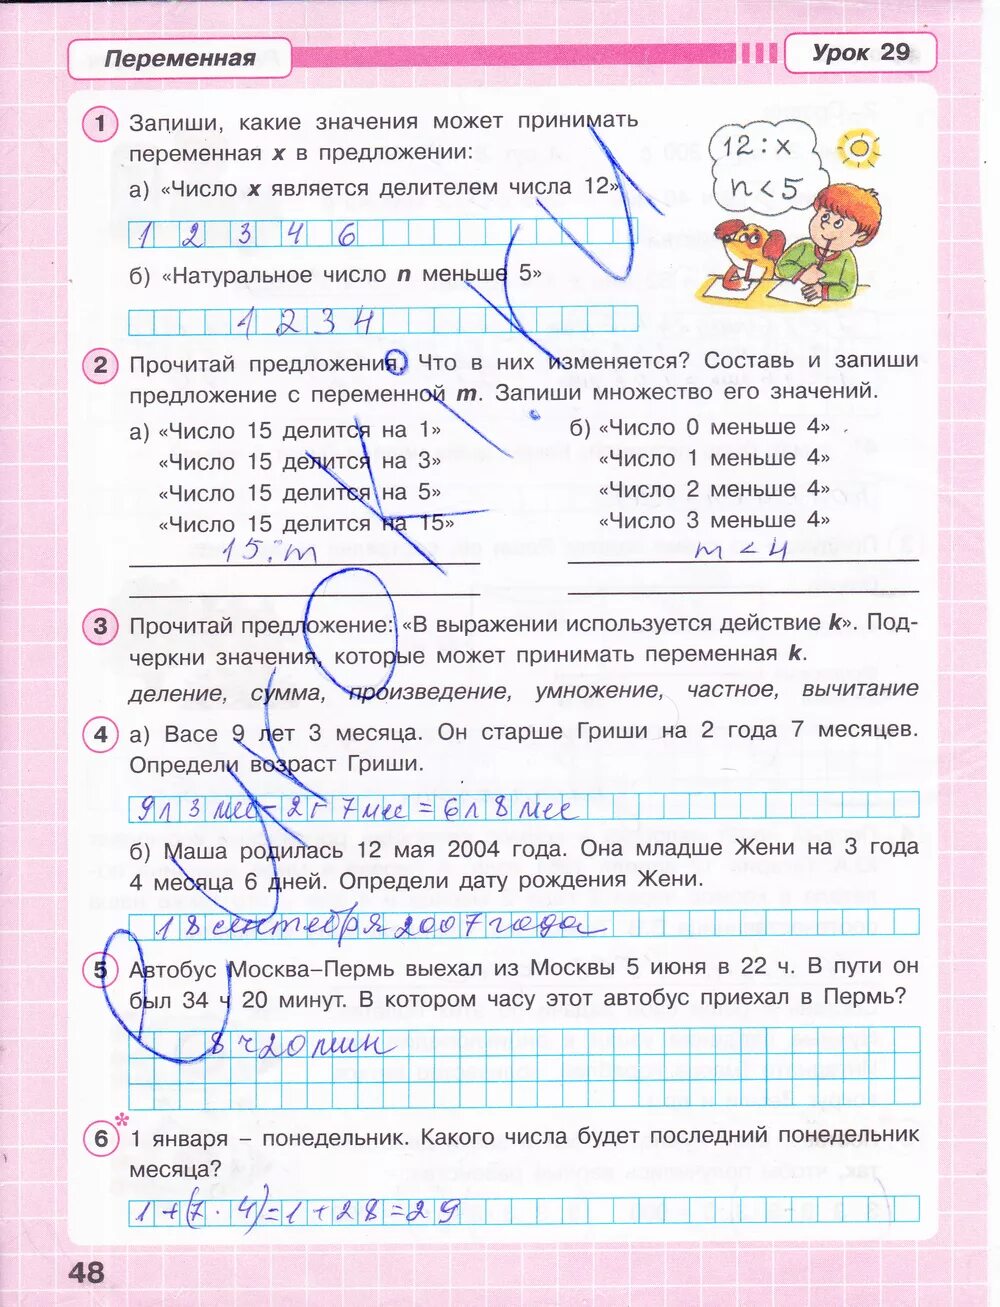 Переменная
Урок 29
1 Запиши, какие значения может принимать
переменная x в предложении:
а) «Число x является делителем числа 12»
1 2 3 4 6
б) «Натуральное число n меньше 5»
1 2 3 4
12 : x
n < 5
2 Прочитай предложения. Что в них изменяется? Составь и запиши
предложение с переменной m. Запиши множество его значений.
а) «Число 15 делится на 1»
«Число 15 делится на 3»
«Число 15 делится на 5»
«Число 15 делится на 15»
15 : m
б) «Число 0 меньше 4»
«Число 1 меньше 4»
«Число 2 меньше 4»
«Число 3 меньше 4»
m < 4
3 Прочитай предложение: «В выражении используется действие k». Под-
черкни значения, которые может принимать переменная k.
деление, сумма, произведение, умножение, частное, вычитание
4 а) Васе 9 лет 3 месяца. Он старше Гриши на 2 года 7 месяцев.
Определи возраст Гриши.
9л 3 мес - 2г 7мес = 6л 8 мес
б) Маша родилась 12 мая 2004 года. Она младше Жени на 3 года
4 месяца 6 дней. Определи дату рождения Жени.
18 сентября 2007 года
5 Автобус Москва–Пермь выехал из Москвы 5 июня в 22 ч. В пути он
был 34 ч 20 минут. В котором часу этот автобус приехал в Пермь?
8 ч 20 мин
6* 1 января – понедельник. Какого числа будет последний понедельник
месяца?
1 + (7 · 4) = 1 + 28 = 29
48